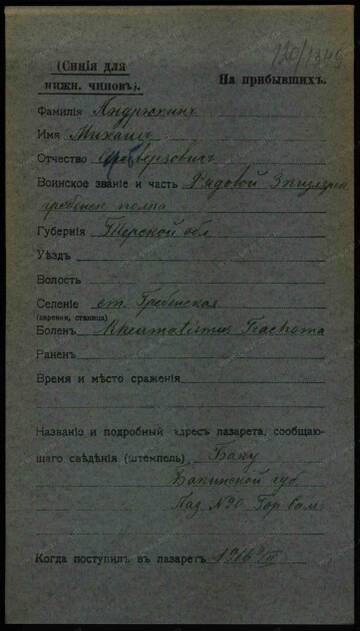 120/1345
(Синія для
нижн. чиновъ).
На прибывшихъ.
Фамилія Андрюнинъ
Имя Михаилъ
Отчество
Воинское званіе и часть Рядовой
гребенск полка
Губернія Терской обл
Уѣздъ
Волость
Селеніе ст. Гребенская
(деревня, станица)
Боленъ Rheumatismus Trachoma
Раненъ
Время и мѣсто сраженія
Названіе и подробный адресъ лазарета, сообщаю-
щаго свѣдѣнія (штемпель) Баку
Бакинской губ.
Лаз. Гор.
Когда поступилъ въ лазаретъ